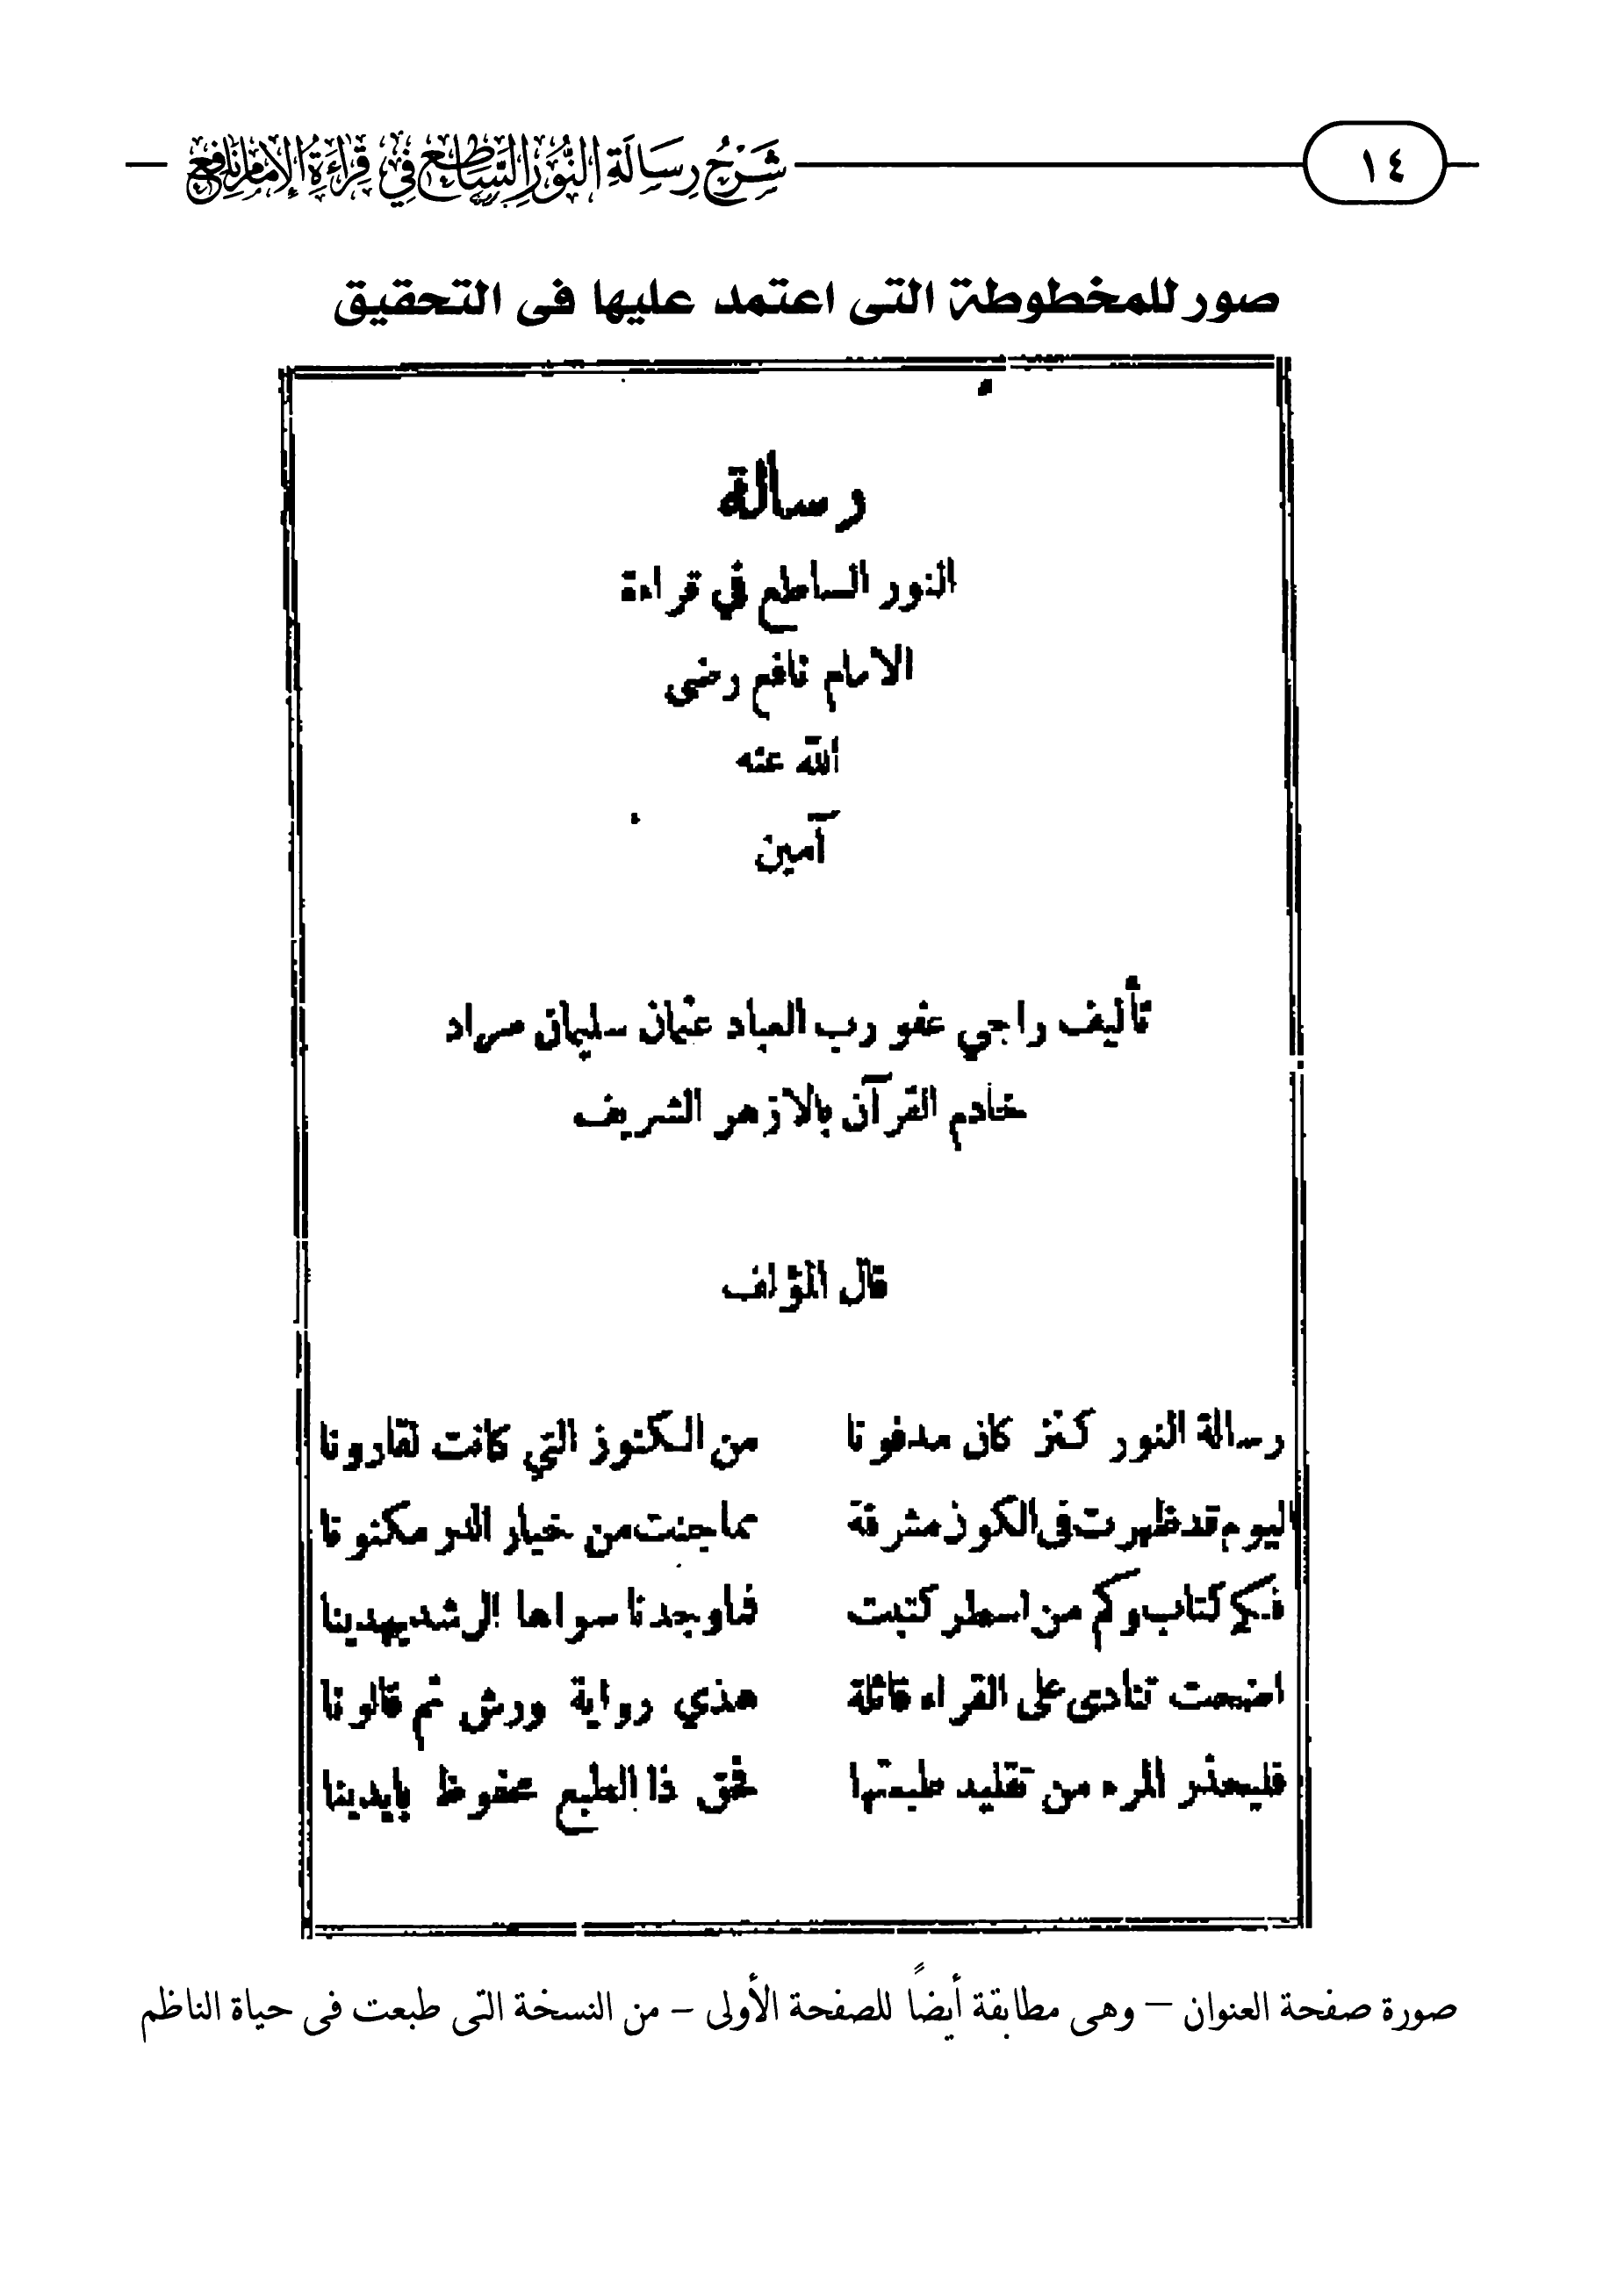 ١٤
شَرْحُ رِسَالَةِ النُّورِ السَّاطِعِ فِي قِرَاءَةِ الإِمَامِ نَافِعٍ
صور للمخطوطة التى اعتمد عليها فى التحقيق
رسالة
النور الساطع في قراءة
الامام نافع رضي
الله عنه
آمين
تأليف راجي عفو رب العباد عثمان سليمان مراد
خادم القرآن بالازهر الشريف
قال المؤلف
رسالة النور كنز كان مدفونا من الكنوز التي كانت لقارونا
اليوم قد ظهرت فى الكون مشرقة بما جنت من خيار الدر مكنونا
فكم كتاب وكم من اسطر كتبت فما وجدنا سواها الرشد يهدينا
اضحت تنادى على القراء قائلة هذي رواية ورش ثم قالونا
فليحذر المرء من تقليد طبعتها فحق ذا الطبع محفوظ بايدينا
صورة صفحة العنوان – وهى مطابقة أيضاً للصفحة الأولى – من النسخة التى طبعت فى حياة الناظم